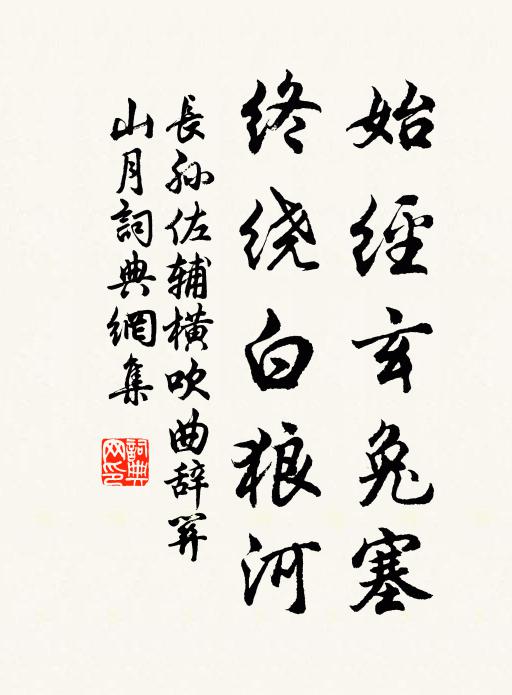 始經玄兔塞
终绕白狼河
長孙佐辅横吹曲辞関
山月詞典網集
詞典
网印